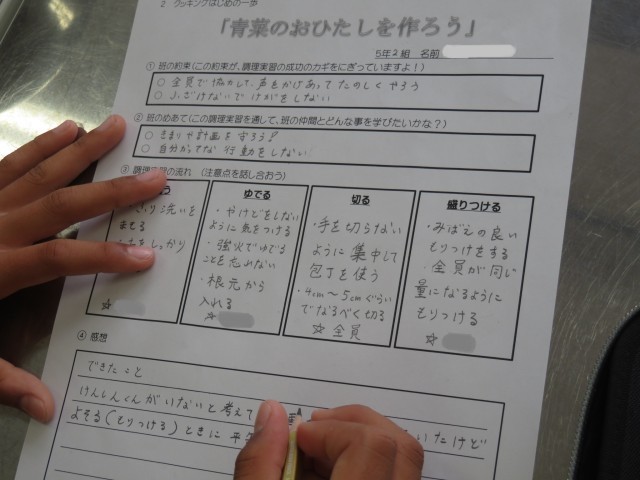 2 クッキングはじめの一歩
「青菜のおひたしを作ろう」
5年2組 名前
① 班の約束(この約束が、調理実習の成功のカギをにぎっていますよ!)
○ 全員で協力して、声をかけあってたのしくやろう
○ ふざけないでけがをしない
② 班のめあて(この調理実習を通して、班の仲間とどんな事を学びたいかな?)
○ きまりや計画を守ろう!
○ 自分かってな行動をしない
③ 調理実習の流れ (注意点を話し合おう)
う
洗いを
しっかり
☆
ゆでる
・やけどをしない
ように気をつける
・強火でゆでる
ことを忘れない
・根元から
入れる
☆
切る
・手を切らない
ように集中して
包丁を使う
・4cm〜5cmぐらい
でなるべく切る
☆全員
盛りつける
・みばえの良い
もりつけをする
・全員が同じ
量になるように
もりつける
☆
④ 感想
できたこと
けんしんくんがいないと考えて いたけど
よそる(もりつける)ときに